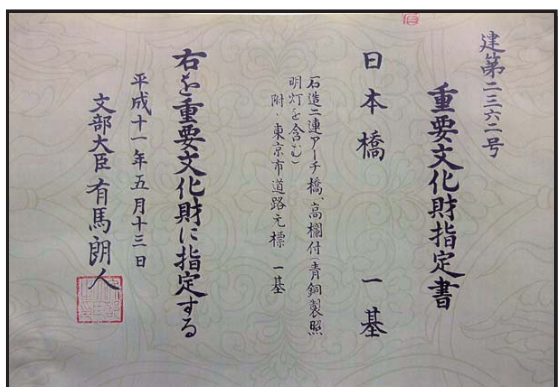 建第二三六二号
重要文化財指定書
日本橋 一基
石造二連アーチ橋、高欄付(青銅製照
明灯を含む)
附・東京市道路元標 一基
右を重要文化財に指定する
平成十一年五月十三日
文部大臣 有馬朗人